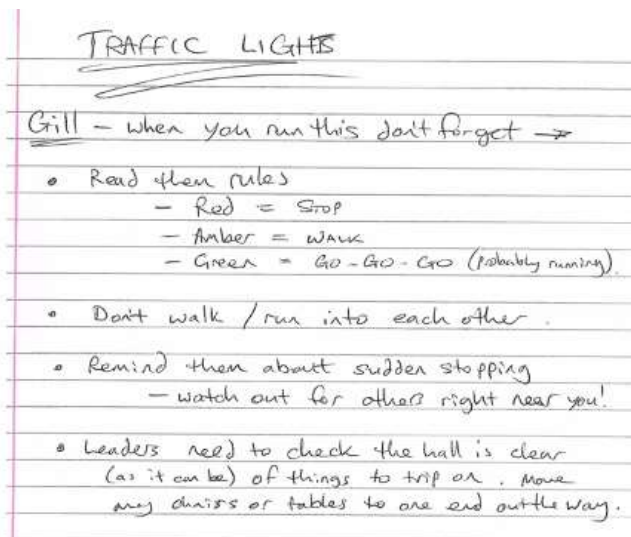 TRAFFIC LIGHTS
Gill - when you run this don't forget →
• Read them rules
- Red = STOP
- Amber = WALK
- Green = GO-GO-GO (probably running).
• Don't walk / run into each other.
• Remind them about sudden stopping
- watch out for others right near you!
• Leaders need to check the hall is clear
(as it can be) of things to trip on. Move
any chairs or tables to one end out the way.